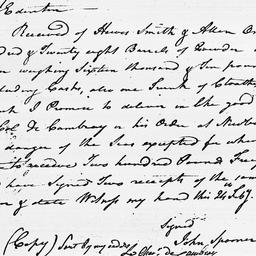 Edenton
Received of Hewes Smith & Allen One
dred & Twenty eight Barrels of Powder
weighing Sixteen thousand & Ten pounds
cluding Casks, also one Trunk of Cloaths
I Promise to deliver in like good
Col. de Cambray or his Order at Newbern
danger of the Seas excepted for wh
to receive Two hundred Pounds Frei
have Signed Two receipts of the same
& date Witness my hand this 24 Feb
Signed
John Spooner
(Copy) Sent by my order
Chev. de Cambray